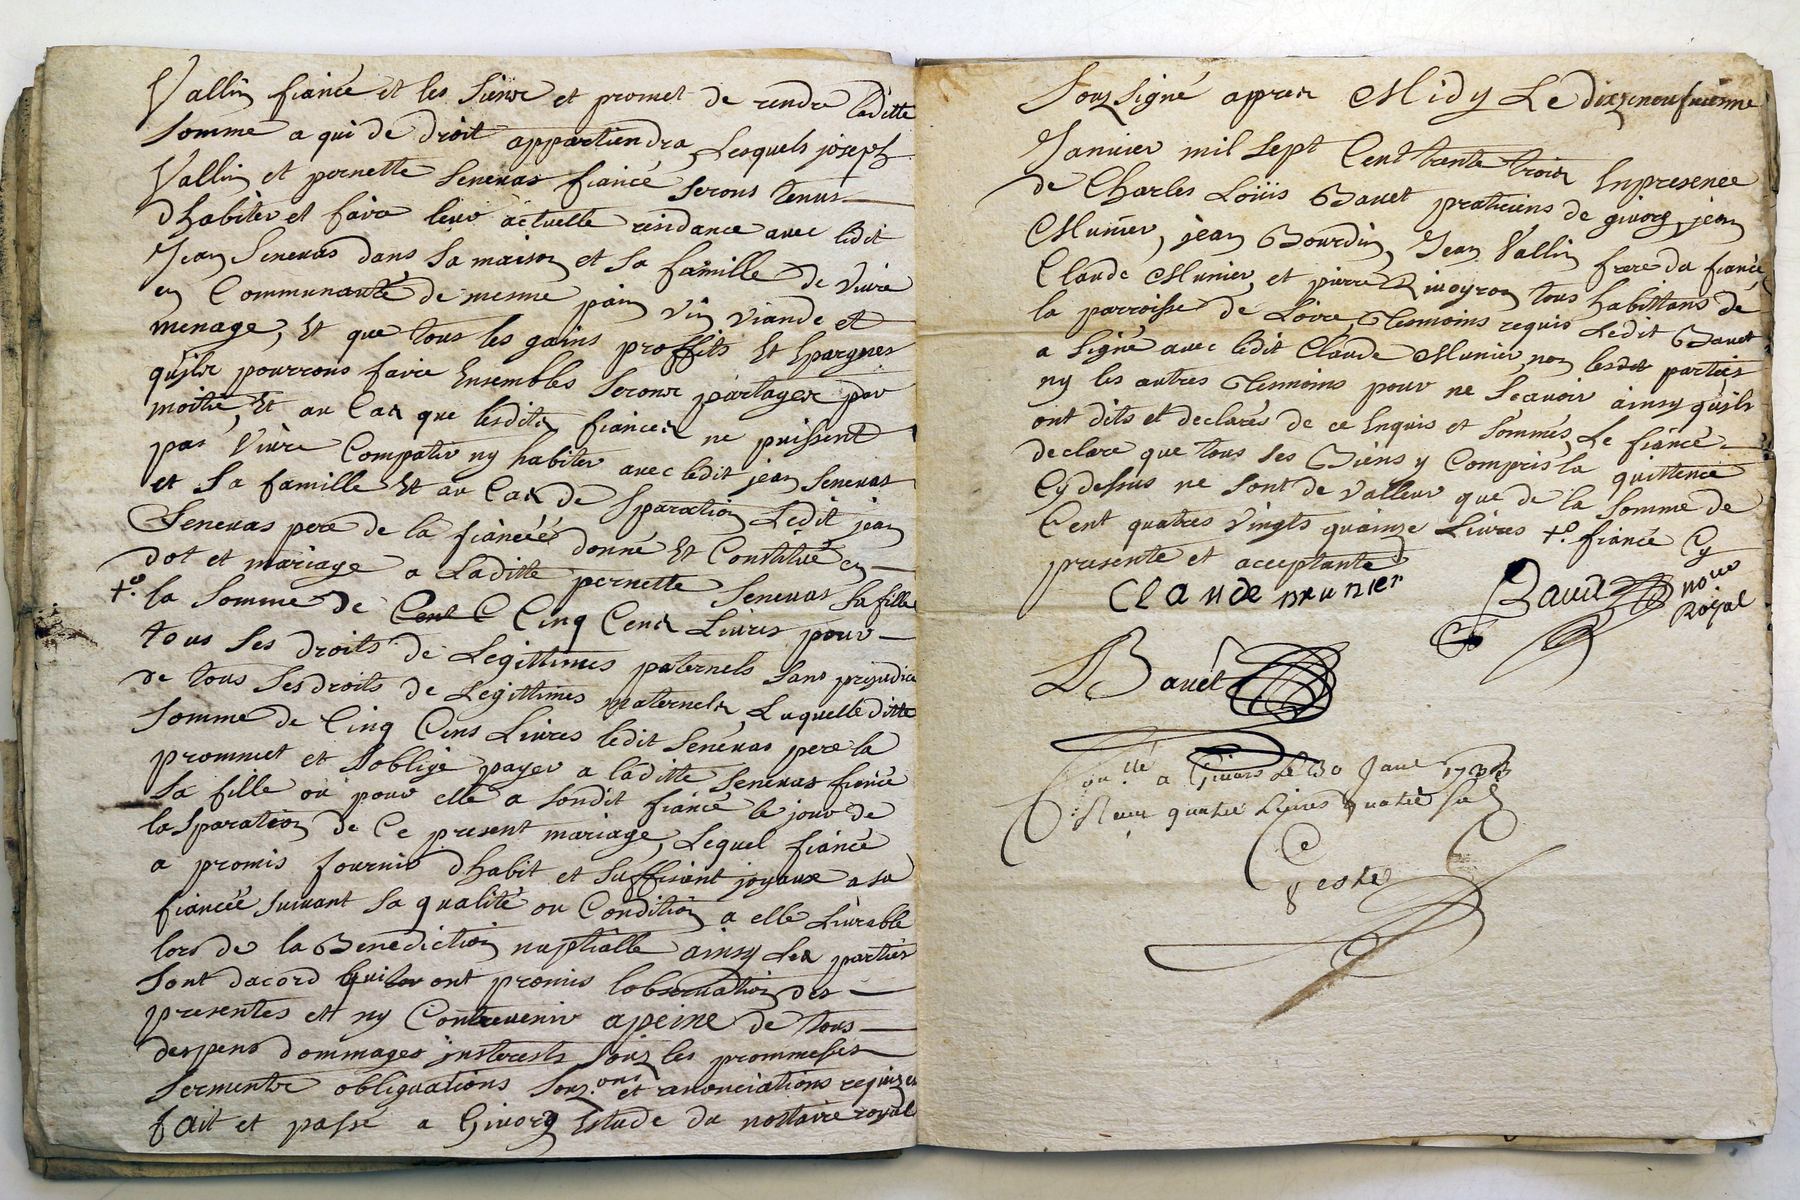 Vallin fiancé et les siens et promet de rendre laditte
somme a qui de droit appartiendra, Lesquels joseph
Vallin et pernette Senevas fiancé serons tenus
dhabiter et faire leur actuelle residance avec ledit
Jean Senevas dans sa maison et sa famille de vivre
en Communauté de mesme pain vin viande et
menage, Et que tous les gains proffits Et Epargnes
quils pourrons faire Ensembles serons partager par
moitié, Et au Cas que lesdits fiances ne puissent
pas Vivre Compatir ny habiter avec ledit jean Senevas
et sa famille Et au Cas de Sparation Ledit jean
Senevas pere de la fiancéé donne Et Constitué en
dot et mariage a Laditte pernette Senevas sa fille
+o. la somme de Cent C Cinq Cens Livres pour
tous ses droits de Legittimes paternels sans prejudice
de tous ses droits de Legittimes maternels, Laquelle ditte
somme de Cinq Cens Livres ledit Senevas pere la
prommet et soblige payer a laditte Senevas fiancé
sa fille ou pour elle a sondit fiancé le jour de
la Sparation de Ce present mariage, Lequel fiancé
a promis fournir dhabit et suffisant joyaux a sa
fiancéé suivant sa qualité ou Condition a elle Livrable
lors de la Benediction nuptialle ainsy Les parties
sont dacord Qui ont promis lobservation des
presentes et ny Contrevenir apeine de tous
despens dommages insterests sous les prommesses
serments obliguations sous.ons et renonciations requizes
fait et passé a Givors Estude du nottaire royal
Souz signé apres Midy Le dixzeneufvieme
Janvier mil sept Cent trente trois Enpresence
de Charles Loüis Bavet praticiens de givors, jean
Munier, jean Bourdin, Jean Vallin frere du fiancé
Claude Munier, et pierre Rivoyron tous habittans de
la parroisse de Loire, Tesmoins requis Ledit Bavet
a signé avec ledit Claude Munier, non lesdit parties
ny les autres Tesmoins pour ne Scavoir ainsy quils
ont dits et declarés de ce Enquis et sommés Le fiancé
declare que tous ses Biens y Compris la quittence
Cy dessus ne sont de valleur que de la somme de
Cent quatres vingts quainze Livres +o. fiancé Cy
presente et acceptante
Claude Munier
Bavet nore
Royal
L Bavet
Con.llé a Givors Le 30 Janv 1733
Receu quatre Livres quatre sols
Geste